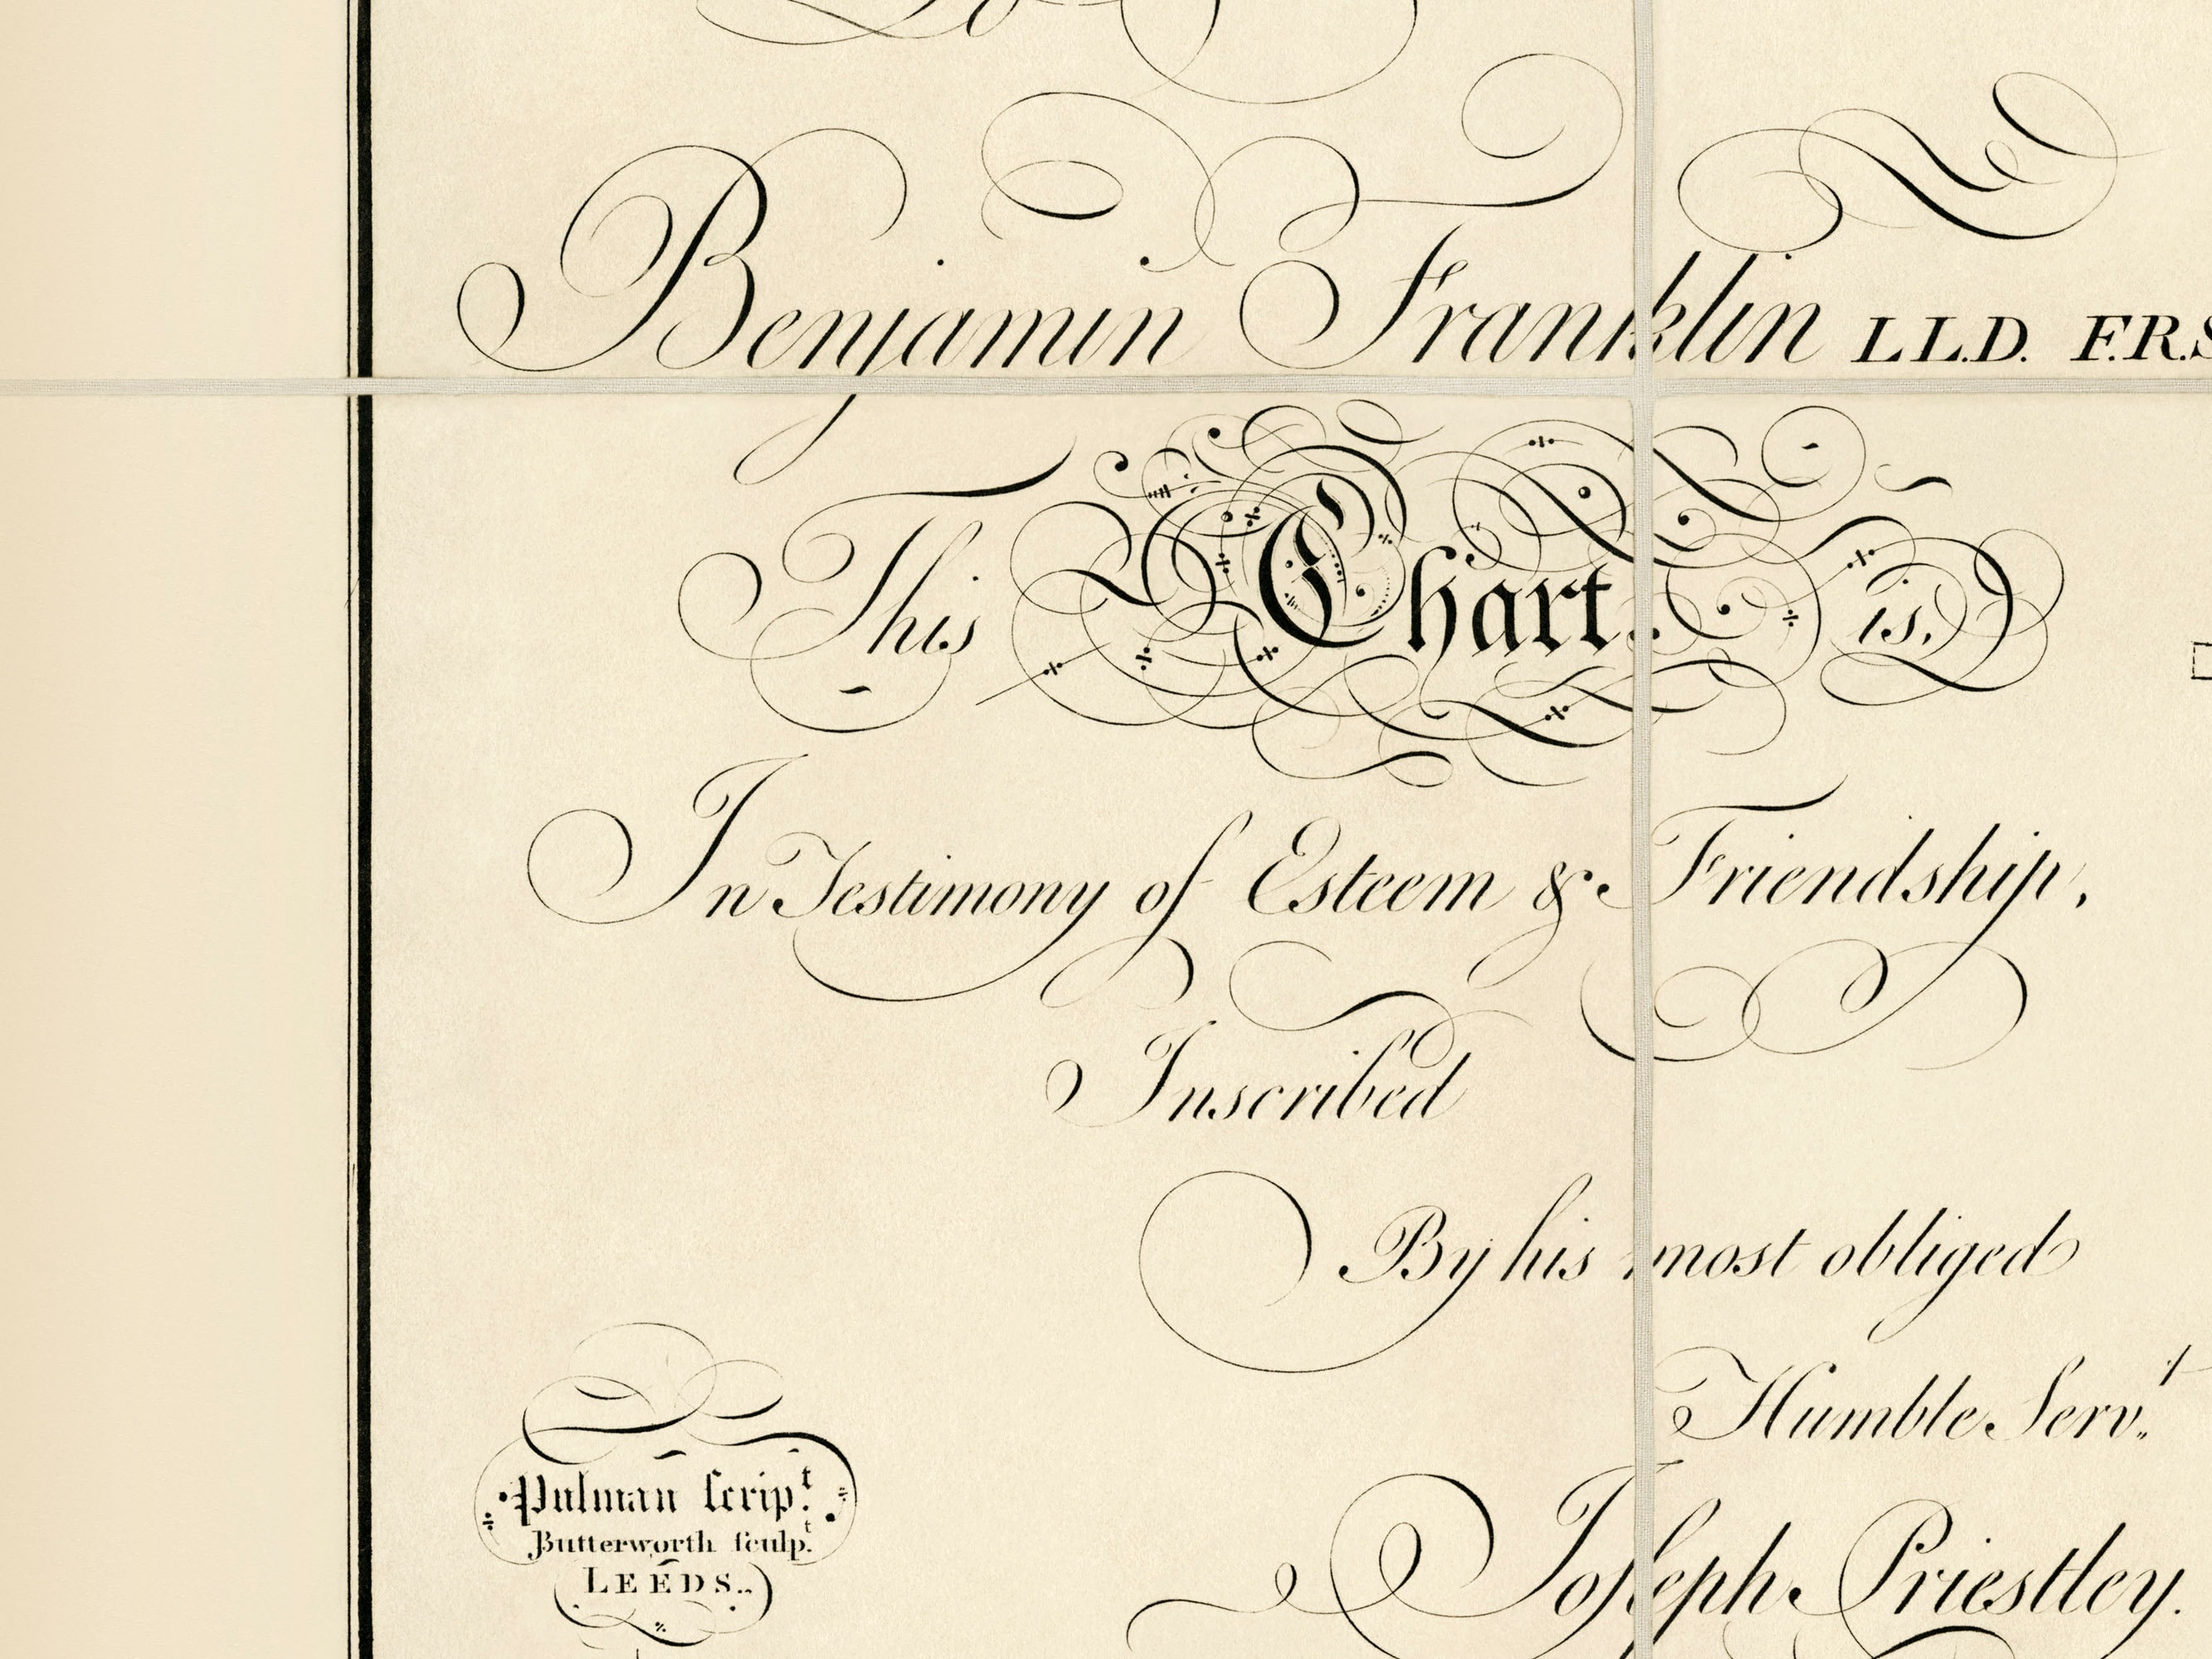 To
Benjamin Franklin LL.D. F.R.S
This Chart is,
In Testimony of Esteem & Friendship,
Inscribed
By his most obliged
Humble Serv.t
Joseph Priestley.
Pulman ſcrip.t
Butterworth ſculp.t
LEEDS.